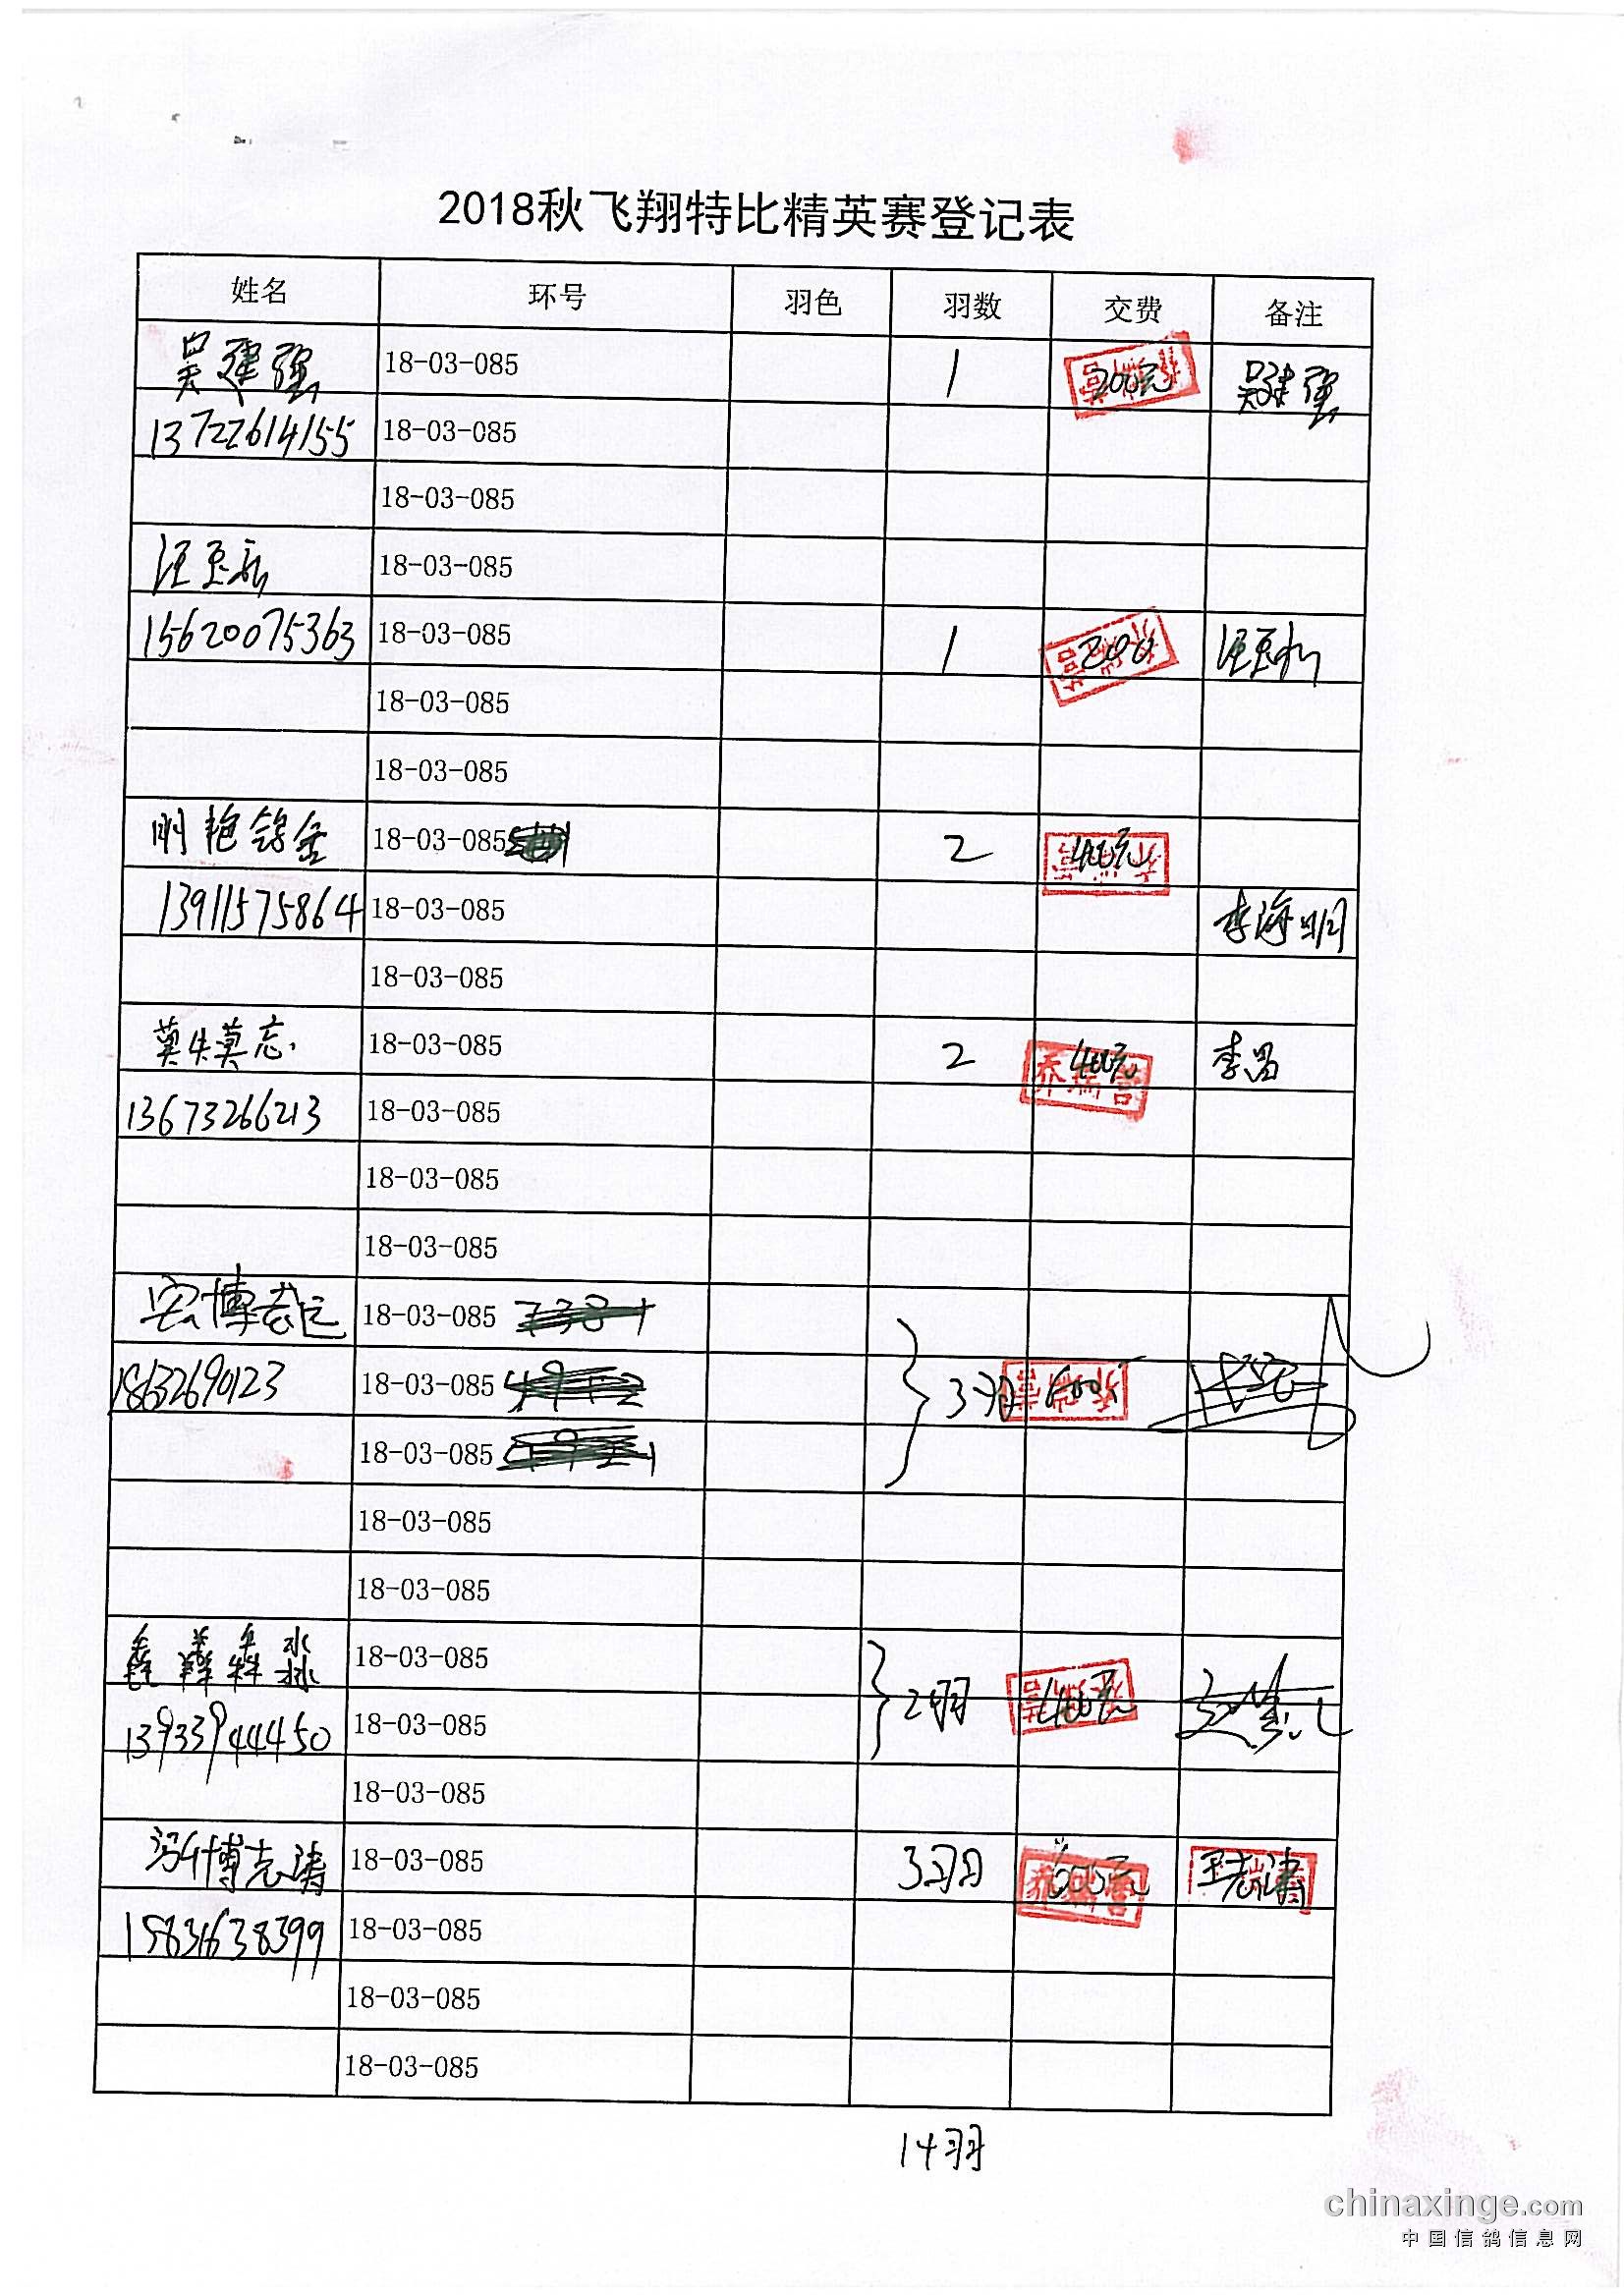 2018秋飞翔特比精英赛登记表
姓名 环号 羽色 羽数 交费 备注
吴建强 18-03-085 1 200元 吴建强
13722614155 18-03-085
18-03-085
汪玉 18-03-085
15620075363 18-03-085 1 200 汪玉
18-03-085
18-03-085
明艳鸽舍 18-03-085 2 400元
13911575864 18-03-085 李海明
18-03-085
莫失莫忘 18-03-085 2 400元 李昌
13673266213 18-03-085
18-03-085
18-03-085
宏博 18-03-085
18632690123 18-03-085 3羽 600
18-03-085
18-03-085
18-03-085
鑫羴犇淼 18-03-085
13933944450 18-03-085 2羽 400元
18-03-085
冯博志涛 18-03-085 3羽 600元 王志涛
15831638399 18-03-085
18-03-085
18-03-085
14羽
chinaxinge.com
中国信鸽信息网